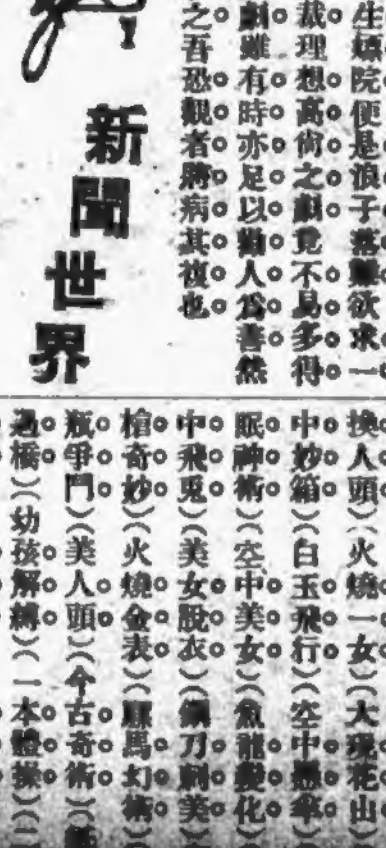 生嬌院便是浪子落難欲求一
裁理想高尚之劇竟不易多得
劇雖有時亦足以勸人為善然
之吾恐觀者將病其複也
新聞世界
換人頭)(火燒一女)(大現花山)(
中妙箱)(白玉飛行)(空中懸傘)(
眠神術)(空中美女)(魚龍變化)(
中飛兎)(美女脫衣)(鋼刀刺美)(
槍奇妙)(火燒金表)(馬幻術)(
瓶爭鬥)(美人頭)(今古奇術)(
過橋)(幼孩解縛)(一本體操)(二